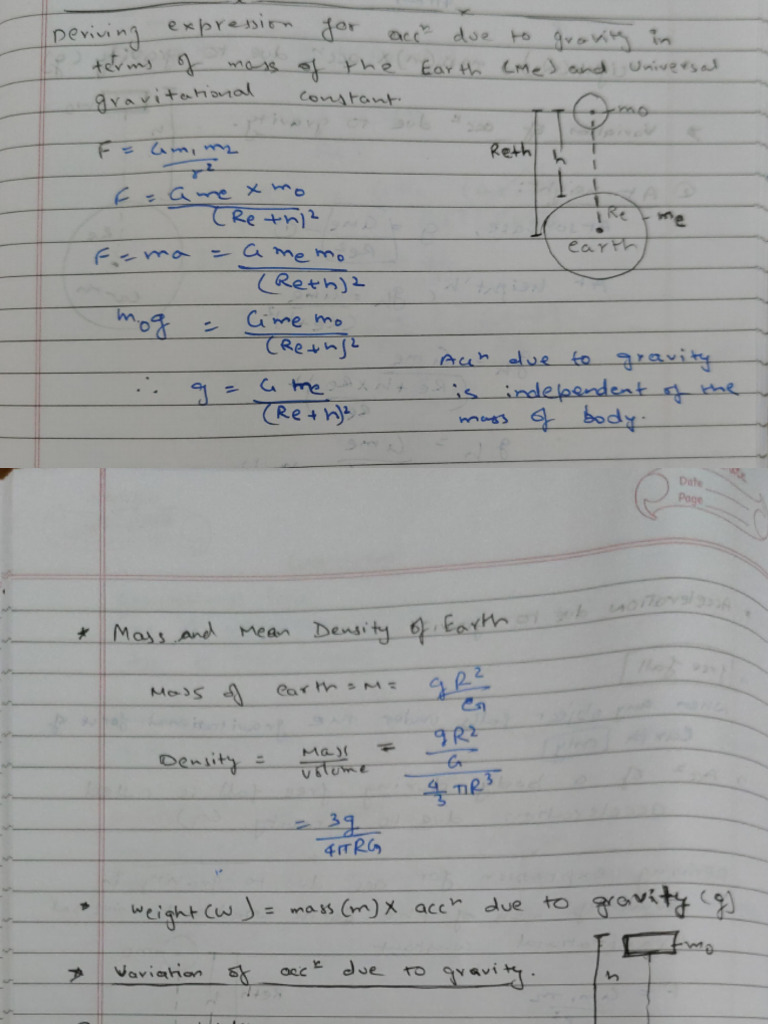 Deriving expression for accⁿ due to gravity in
terms of mass of the Earth (Me) and Universal
gravitational constant.
mo
Re+h
h
Re
me
earth
F = Gm₁m₂/r²
F = Gme × mo/(Re+h)²
F = ma = Gmemo/(Re+h)²
mog = Gmemo/(Re+h)²
∴ g = Gme/(Re+h)²
Accⁿ due to gravity
is independent of the
mass of body.
Date
Page
* Mass and Mean Density of Earth
Mass of earth = M = gR²/G
Density = Mass/volume = (gR²/G)/(4/3 πR³)
= 3g/4πRG
* Weight (W) = mass (m) × accⁿ due to gravity (g)
* Variation of accⁿ due to gravity.
mo
h